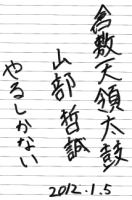 倉敷天領太鼓
山部哲誠
やるしかない
2012.1.5